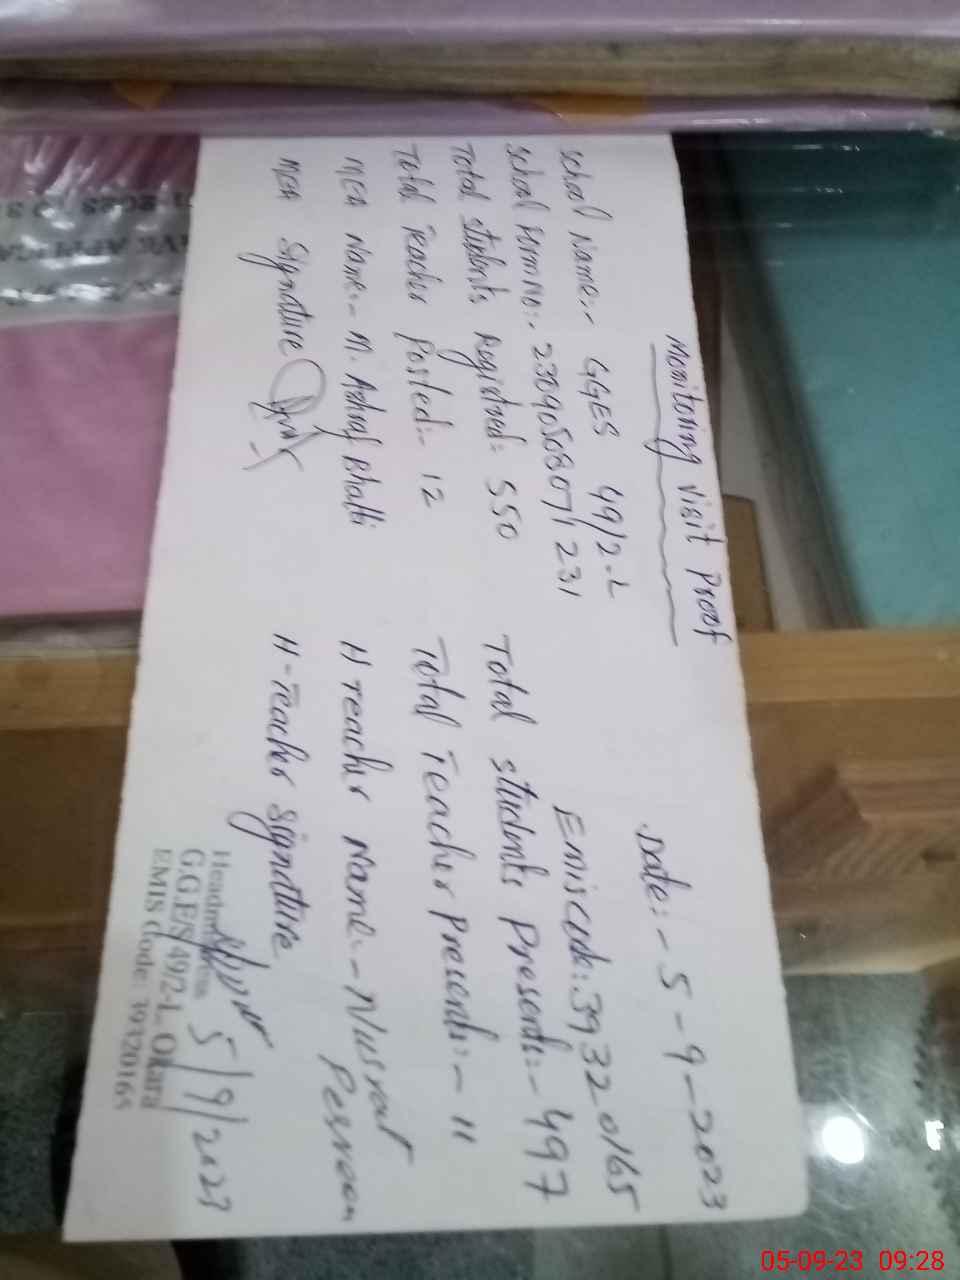 Monitoring visit Proof
Date:- 5-9-2023
School Name:- GGES 49/2-L
Emiscode: 39320165
School Hrm no:- 23090508071231
Total students Registred: 550
Total students Presents:- 497
Total Teacher Posted:- 12
Total Teacher Presents:- 11
MEA Name:- M. Ashraf Bhatti
H Teacher Name:- Nusrat Perveen
MEA Signature
H-Teacher Signature
5/9/2023
G.G.E/S 49/2-L Okara
EMIS Code: 39320165
05-09-23 09:28